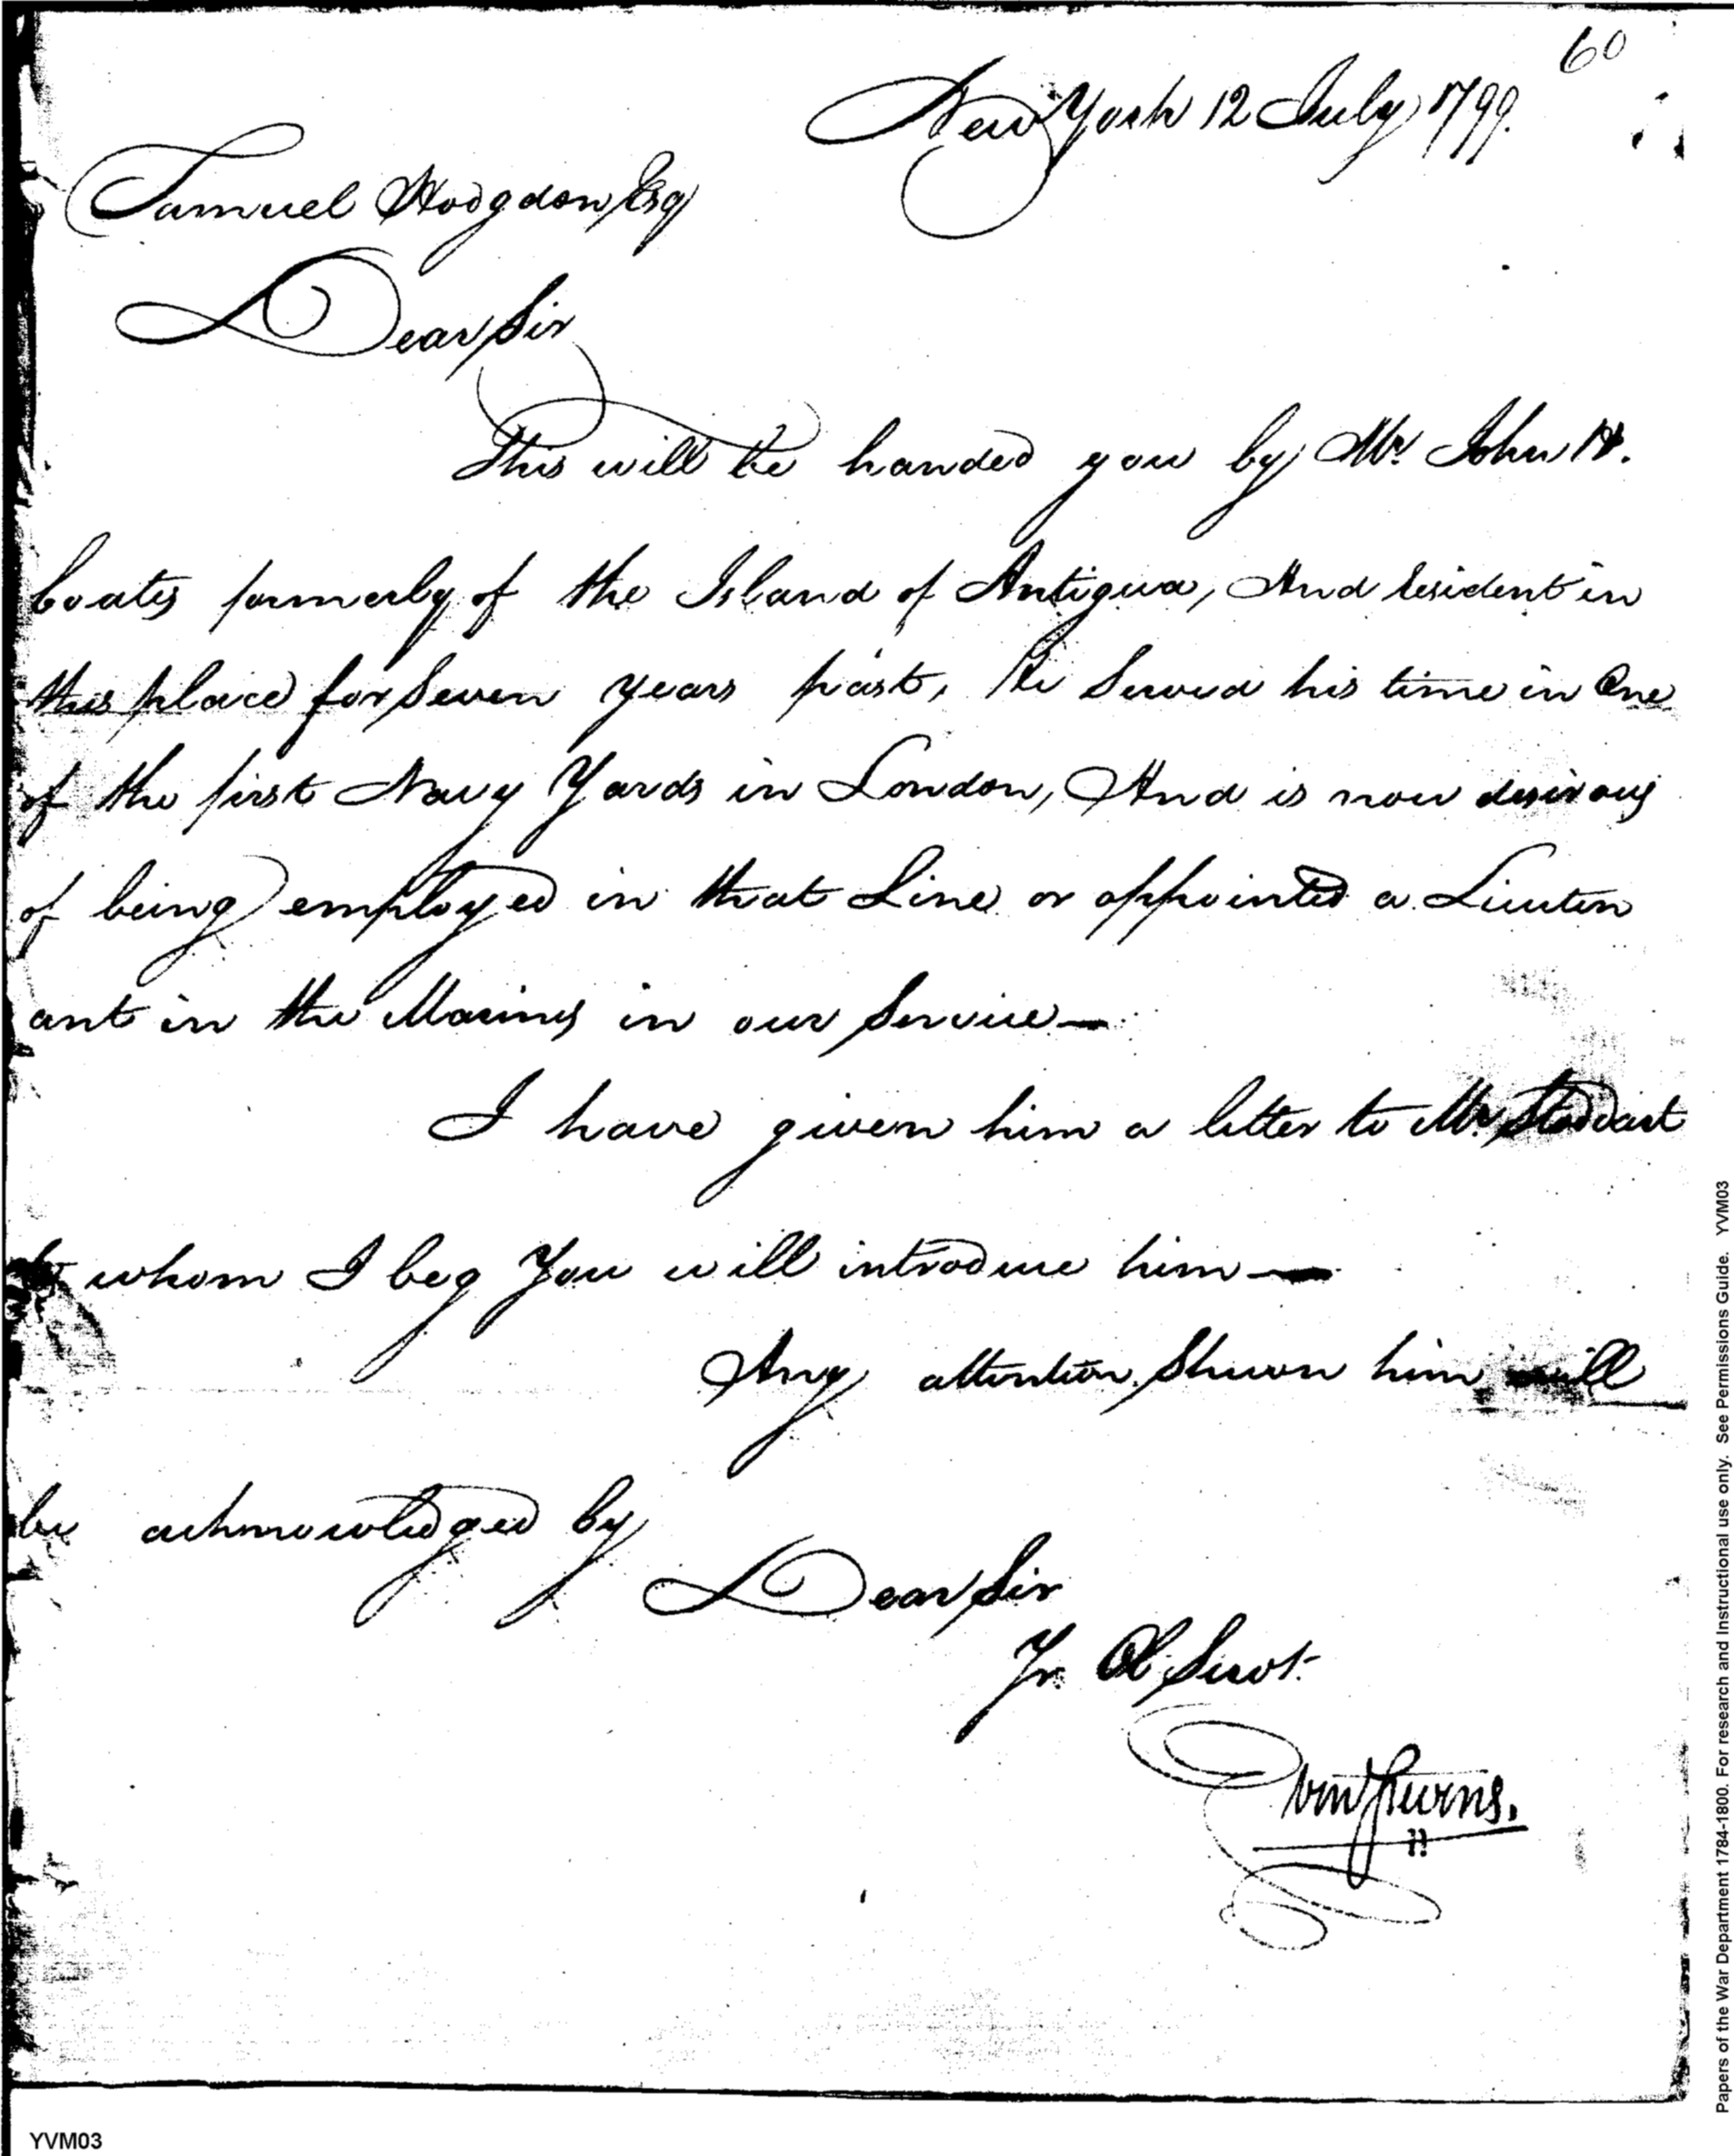 60
New York 12 July 1799.
Samuel Hodgdon Esq
Dear Sir
This will be handed you by Mr. John H.
Coates formerly of the Island of Antigua, And resident in
this place for Seven years past, He Served his time in One
of the first Navy Yards in London, And is now desirous
of being employed in that Line or appointed a Lieuten
ant in the Marines in our Service—
I have given him a letter to Mr. Stoddart
to whom I beg You will introduce him—
Any attention Shewn him will
be acknowledged by
Dear Sir
Yr. Ob Servt.
YVM03
Papers of the War Department 1784-1800. For research and instructional use only. See Permissions Guide. YVM03